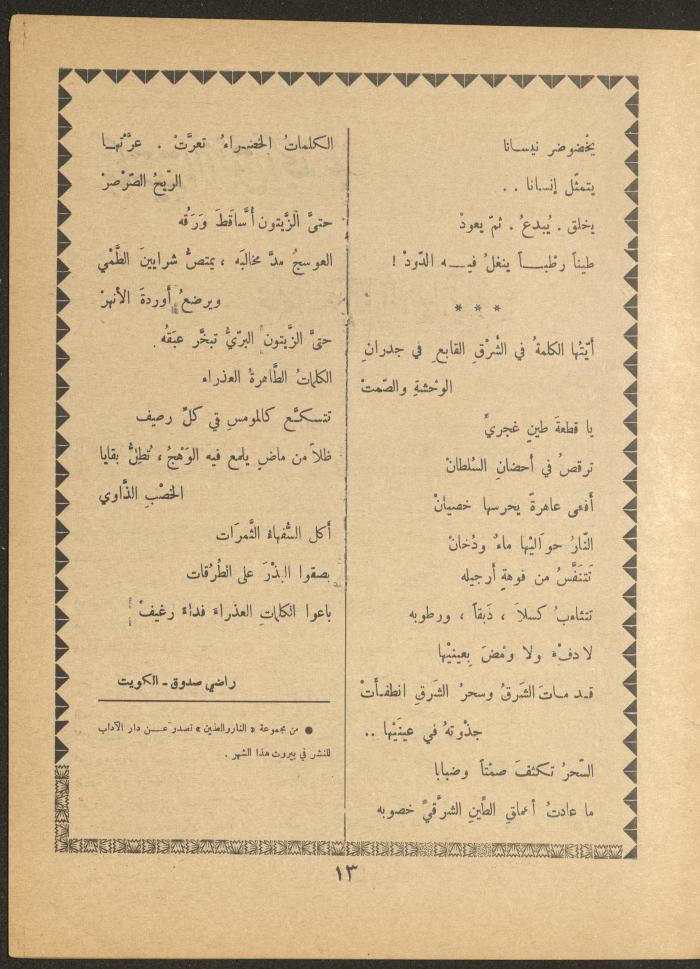 يخْضوضر نيسانا
يتمثّل إنسانا . .
يخلق . يُبدعُ . ثمّ يعودْ
طيناً رطْبــاً ينغلُ فيــه الدّودْ !
* * *
أيّتُها الكلمةُ في الشّرْقِ القابعِ في جدرانِ
الوحْشةِ والصّمتْ
يا قطعةَ طينٍ غجريٍّ
ترقصُ في أحضانِ السّلطانْ
أفعى عاهرةً يحرسها خصيانْ
النّارُ حواَليْها ماءٌ ودُخانْ
تَتنَفَّسُ من فوهةِ أرجيله
تتثاءبُ كسلاً ، دَبَقاً ، ورطوبه
لا دفْءَ ولا ومْضَ بِعينيْها
قـد مـاتَ الشّرقُ وسحرُ الشّرقِ انطفـأتْ
جذْوتهُ في عينَيْها ..
السّحرُ تكثّفَ صمْتاً وضبابا
ما عادتُ أعماقِ الطّينِ الشرْقيِّ خصوبه
الكلماتُ الخضراءُ تعرّتْ . عرّتْهـا
الرّيحُ الصّرْصرْ
حتىَّ الزّيتون أُسّاقطَ وَرَقُه
العوسجُ مدَّ مخالبَه ، يمتصُّ شرايينَ الطّمْي
ويرضعُ أوردةَ الأنهرْ
حتىَّ الزّيتون البرّيُّ تبخّر عبَقُه .
الكلماتُ الطّاهرةُ العذراء
تتسكّع كالمومسِ في كلِّ رصيف
ظلاّ من ماضٍ يلمع فيه الوَهْجُ ، تُطِلُّ بقايا
الخصْبِ الذّاوي
أكل السُّفهاءُ الثّمرَات
بصقوا البذْرَ على الطُرُقات
باعوا الكلماتِ العذراءَ فداءَ رغيفْ !
راضي صدوق ــ الكويت
● من مجموعة « النار والطين » تصدر عــن دار الآداب
للنشر في بيروت هذا الشهر .
١٣